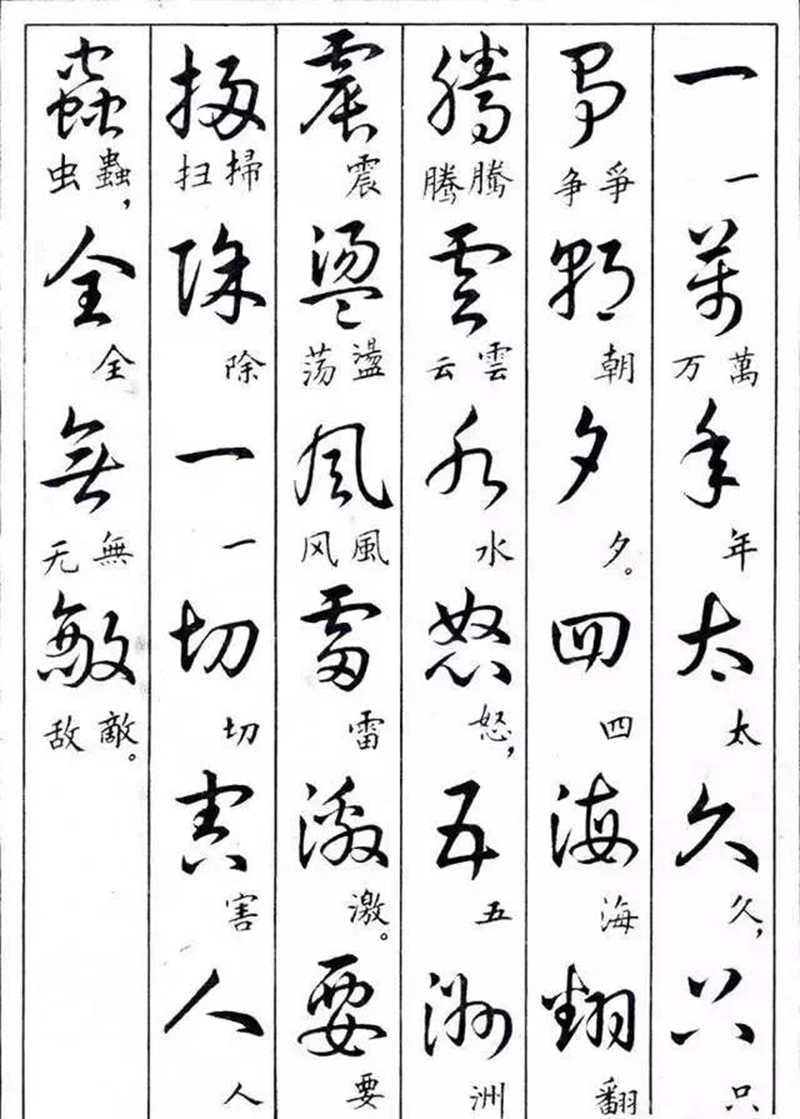 一萬年太久只
一 萬万 年 太 久， 只
爭朝夕四海翻
爭争 朝 夕。 四 海 翻
騰雲水怒五洲
騰腾 雲云 水 怒， 五 洲
震盪風雷激要
震 盪荡 風风 雷 激。 要
掃除一切害人
掃扫 除 一 切 害 人
蟲全無敵
蟲，虫 全 無无 敵。敌